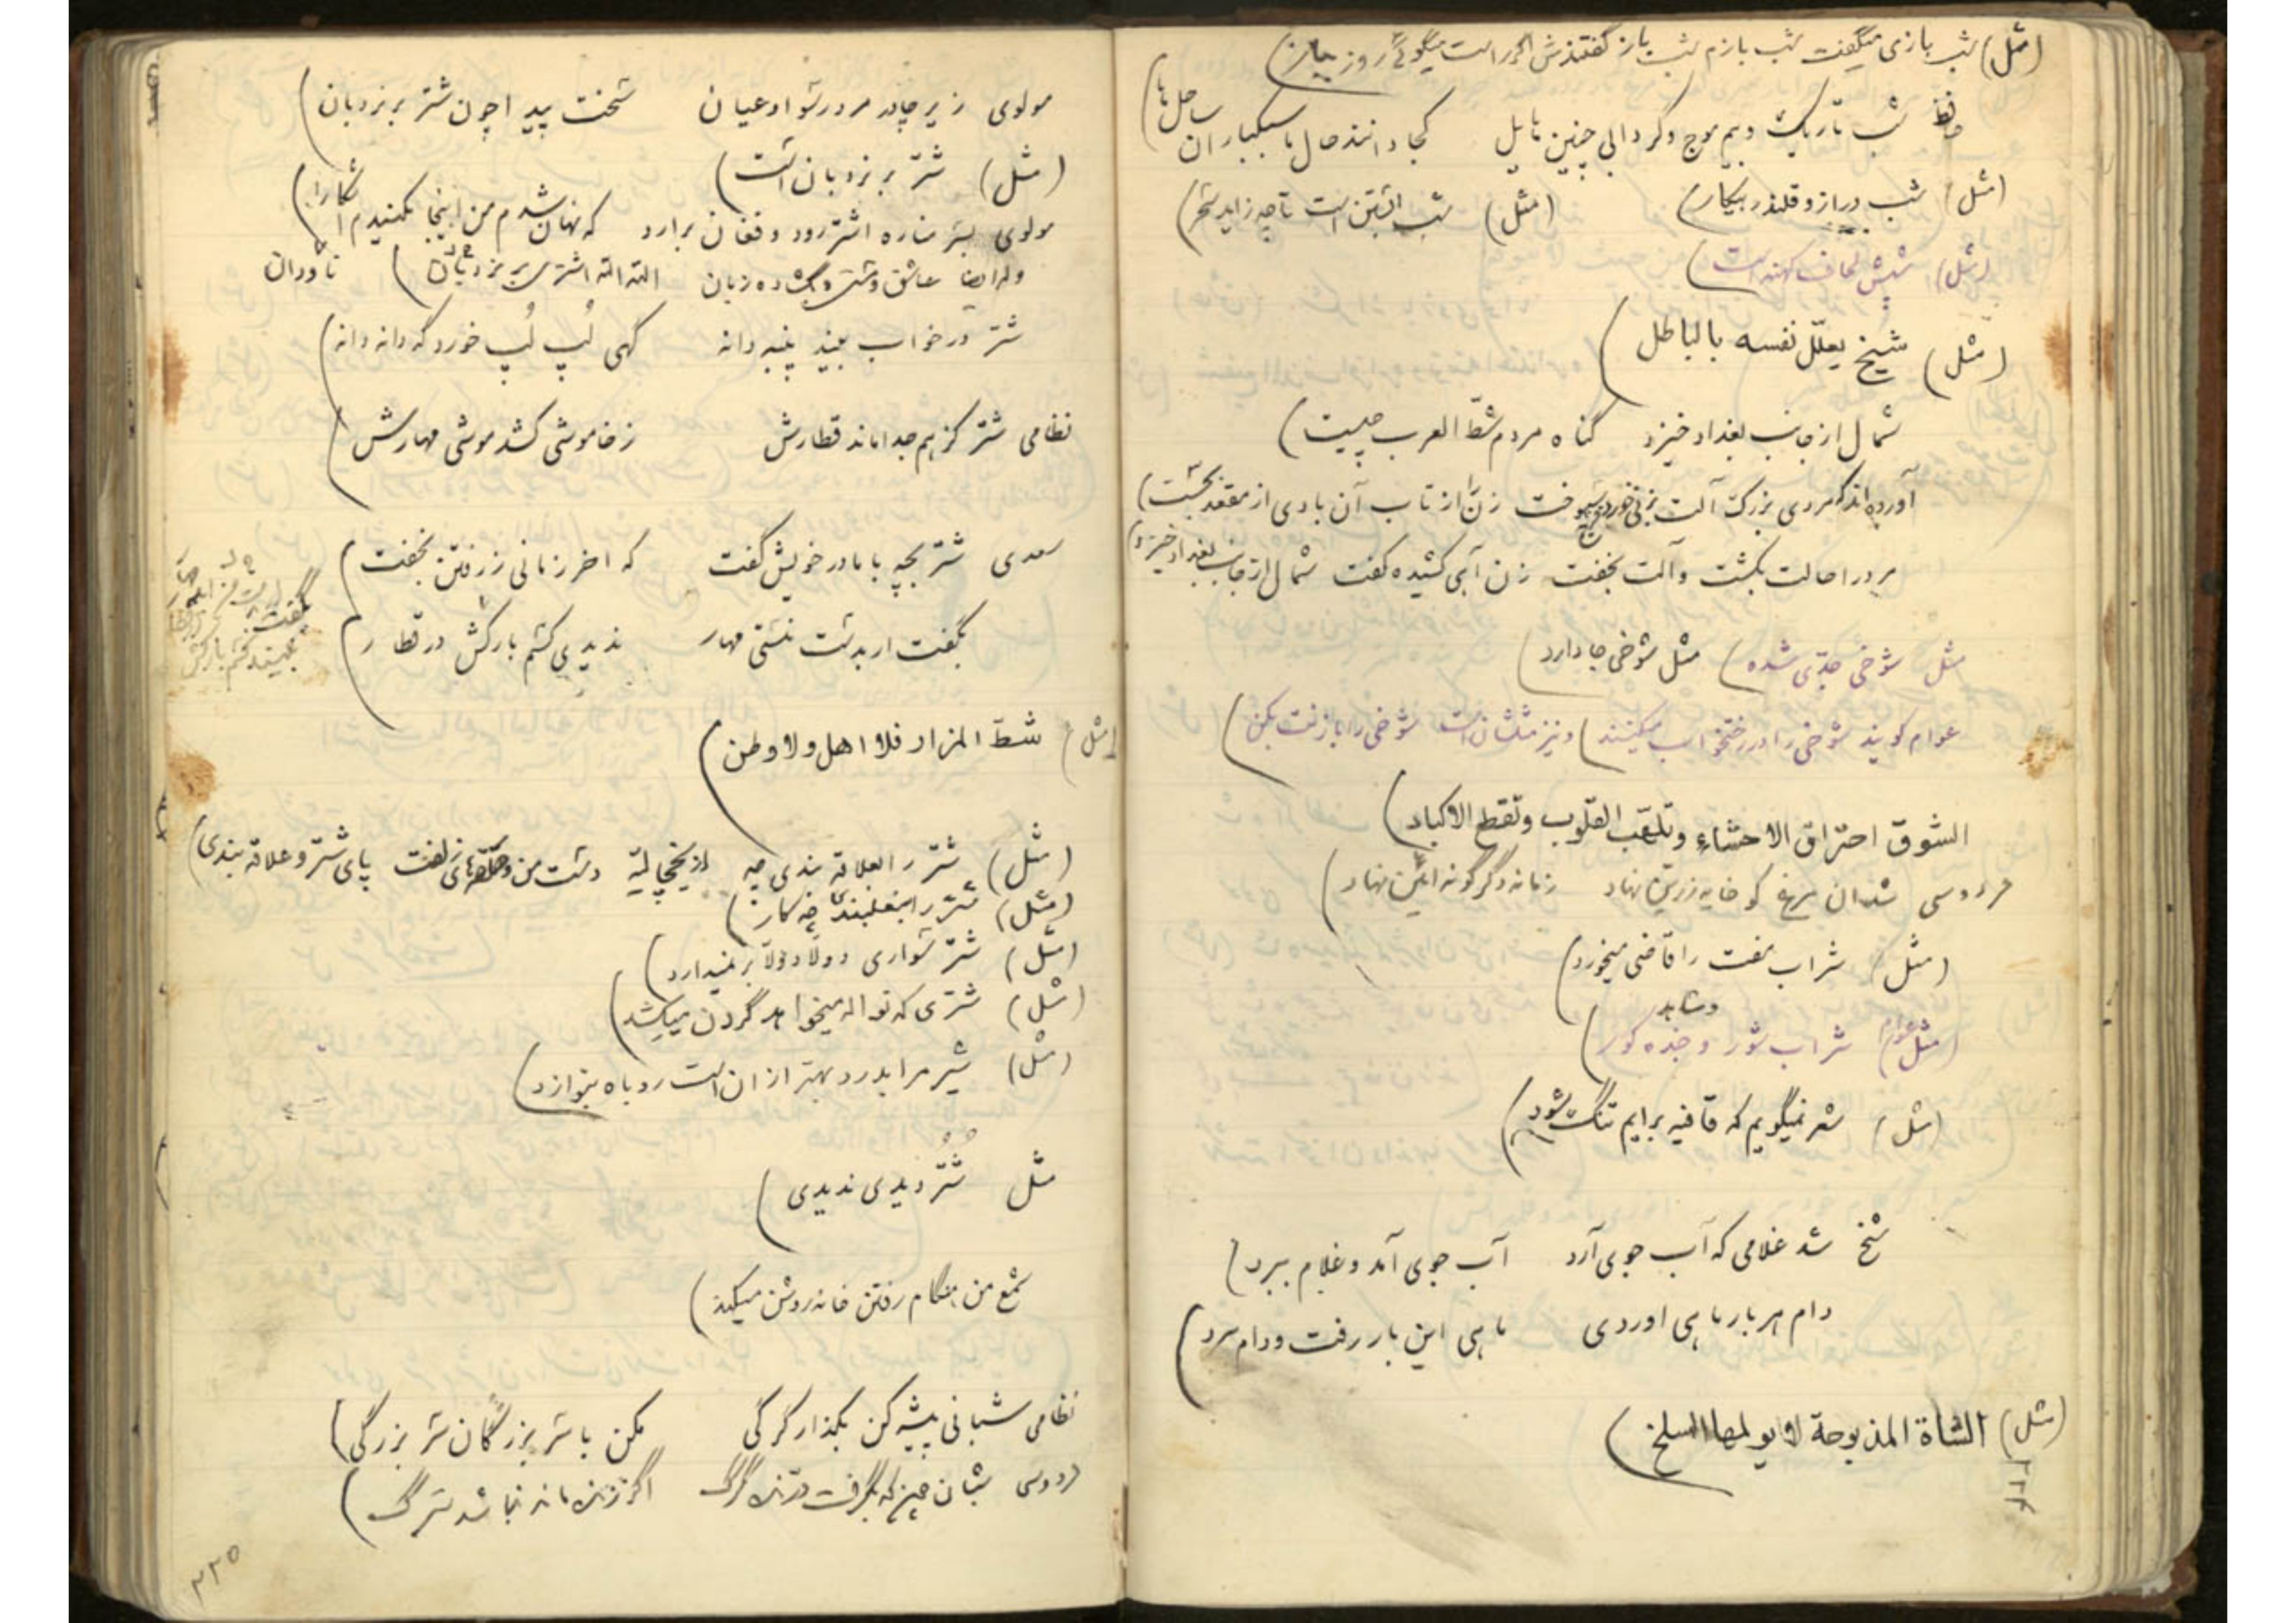 (مثل) شب بازی میگفت شب بازم شب باز گفتندش اگر راست میگوئی روز بباز)
حافظ شب تاریک و بیم موج و گردابی چنین هایل کجا دانند حال ما سبکباران ساحل ها)
(مثل) شب دراز و قلندر بیکار) (مثل) شب آبستن است تا چه زاید سحر)
(مثل) شپش لحاف کهنه است)
(مثل) شیخ یعلّل نفسه بالباطل)
شمال از جانب بغداد خیزد گناه مردم شطّ العرب چیست)
آورده اند که مردی بزرگ آلت بزنی خورد زن را از تاب آن بادی از مقعد بجست)
مرد را حالت بگشت و آلت بخفت زن آهی کشیده گفت شمال از جانب بغداد خیزد)
مثل شوخی جدّی شده) مثل شوخی جا دارد)
عوام گویند شوخی را در رختخواب میکنند) و نیز مثلشان است شوخی را با زنت بکن)
الشوق احتراق الاحشاء و تلهّب القلوب و تقطع الاکباد)
فردوسی شد آن مرغ کو خایه زرین نهاد زمانه دگرگونه آئین نهاد)
(مثل) شراب مفت را قاضی میخورد)
(مثل عوام) شراب شور و شاهد کور)
(مثل) شعر نمیگویم که قافیه برایم تنگ شود)
شد غلامی که آب جوی آرد آب جوی آمد و غلام ببرد)
دام هر بار ماهی اوردی ماهی این بار رفت و دام ببرد)
(مثل) الشاة المذبوحة لا یولمها السلخ)
۲۲۴
مولوی زیر چادر مرد رسوا و عیان سخت پیدا چون شتر بر نردبان)
(مثل) شتر بر نردبان است)
مولوی بسر مناره اشتر رود و فغان برارد که نهان شدم من اینجا مکنیدم آشکارا)
وله ایضا عاشق و مست و بگشاده زبان الله الله اشتری بر نردبان) ناودان
شتر در خواب بیند پنبه دانه گهی لُپ لُپ خورد گه دانه دانه)
نظامی شتر کز هم جدا ماند قطارش ز خاموشی کشد موشی مهارش)
سعدی شتر بچه با مادر خویش گفت که اخر زمانی ز رفتن بخفت)
بگفت ار بدست منستی مهار ندیدی کسم بارکش در قطار)
(مثل) شطّ المزار فلا اهل ولا وطن)
(مثل) شتر را بعلاقه بندی چه از یخچالیّه دست من و حلقه های زلفت پای شتر و علاقه بندی)
(مثل) شتر را بنعلبندی چه کار)
(مثل) شتر سواری دولّا دولّا بر نمیدارد)
(مثل) شتری که نواله میخواهد گردن میکشد)
(مثل) شیر مرا بدرد بهتر از ان است روباه بنوازد)
مثل شُتُر دیدی ندیدی)
شمع من هنگام رفتن خانه روشن میکند)
نظامی شبانی پیشه کن بگذار گرگی مکن با سر بزرگان سر بزرگی)
فردوسی شبان چیز که بگرفت درّنده گرگ اگر زنده ماند نباشد سترگ)
۲۲۵